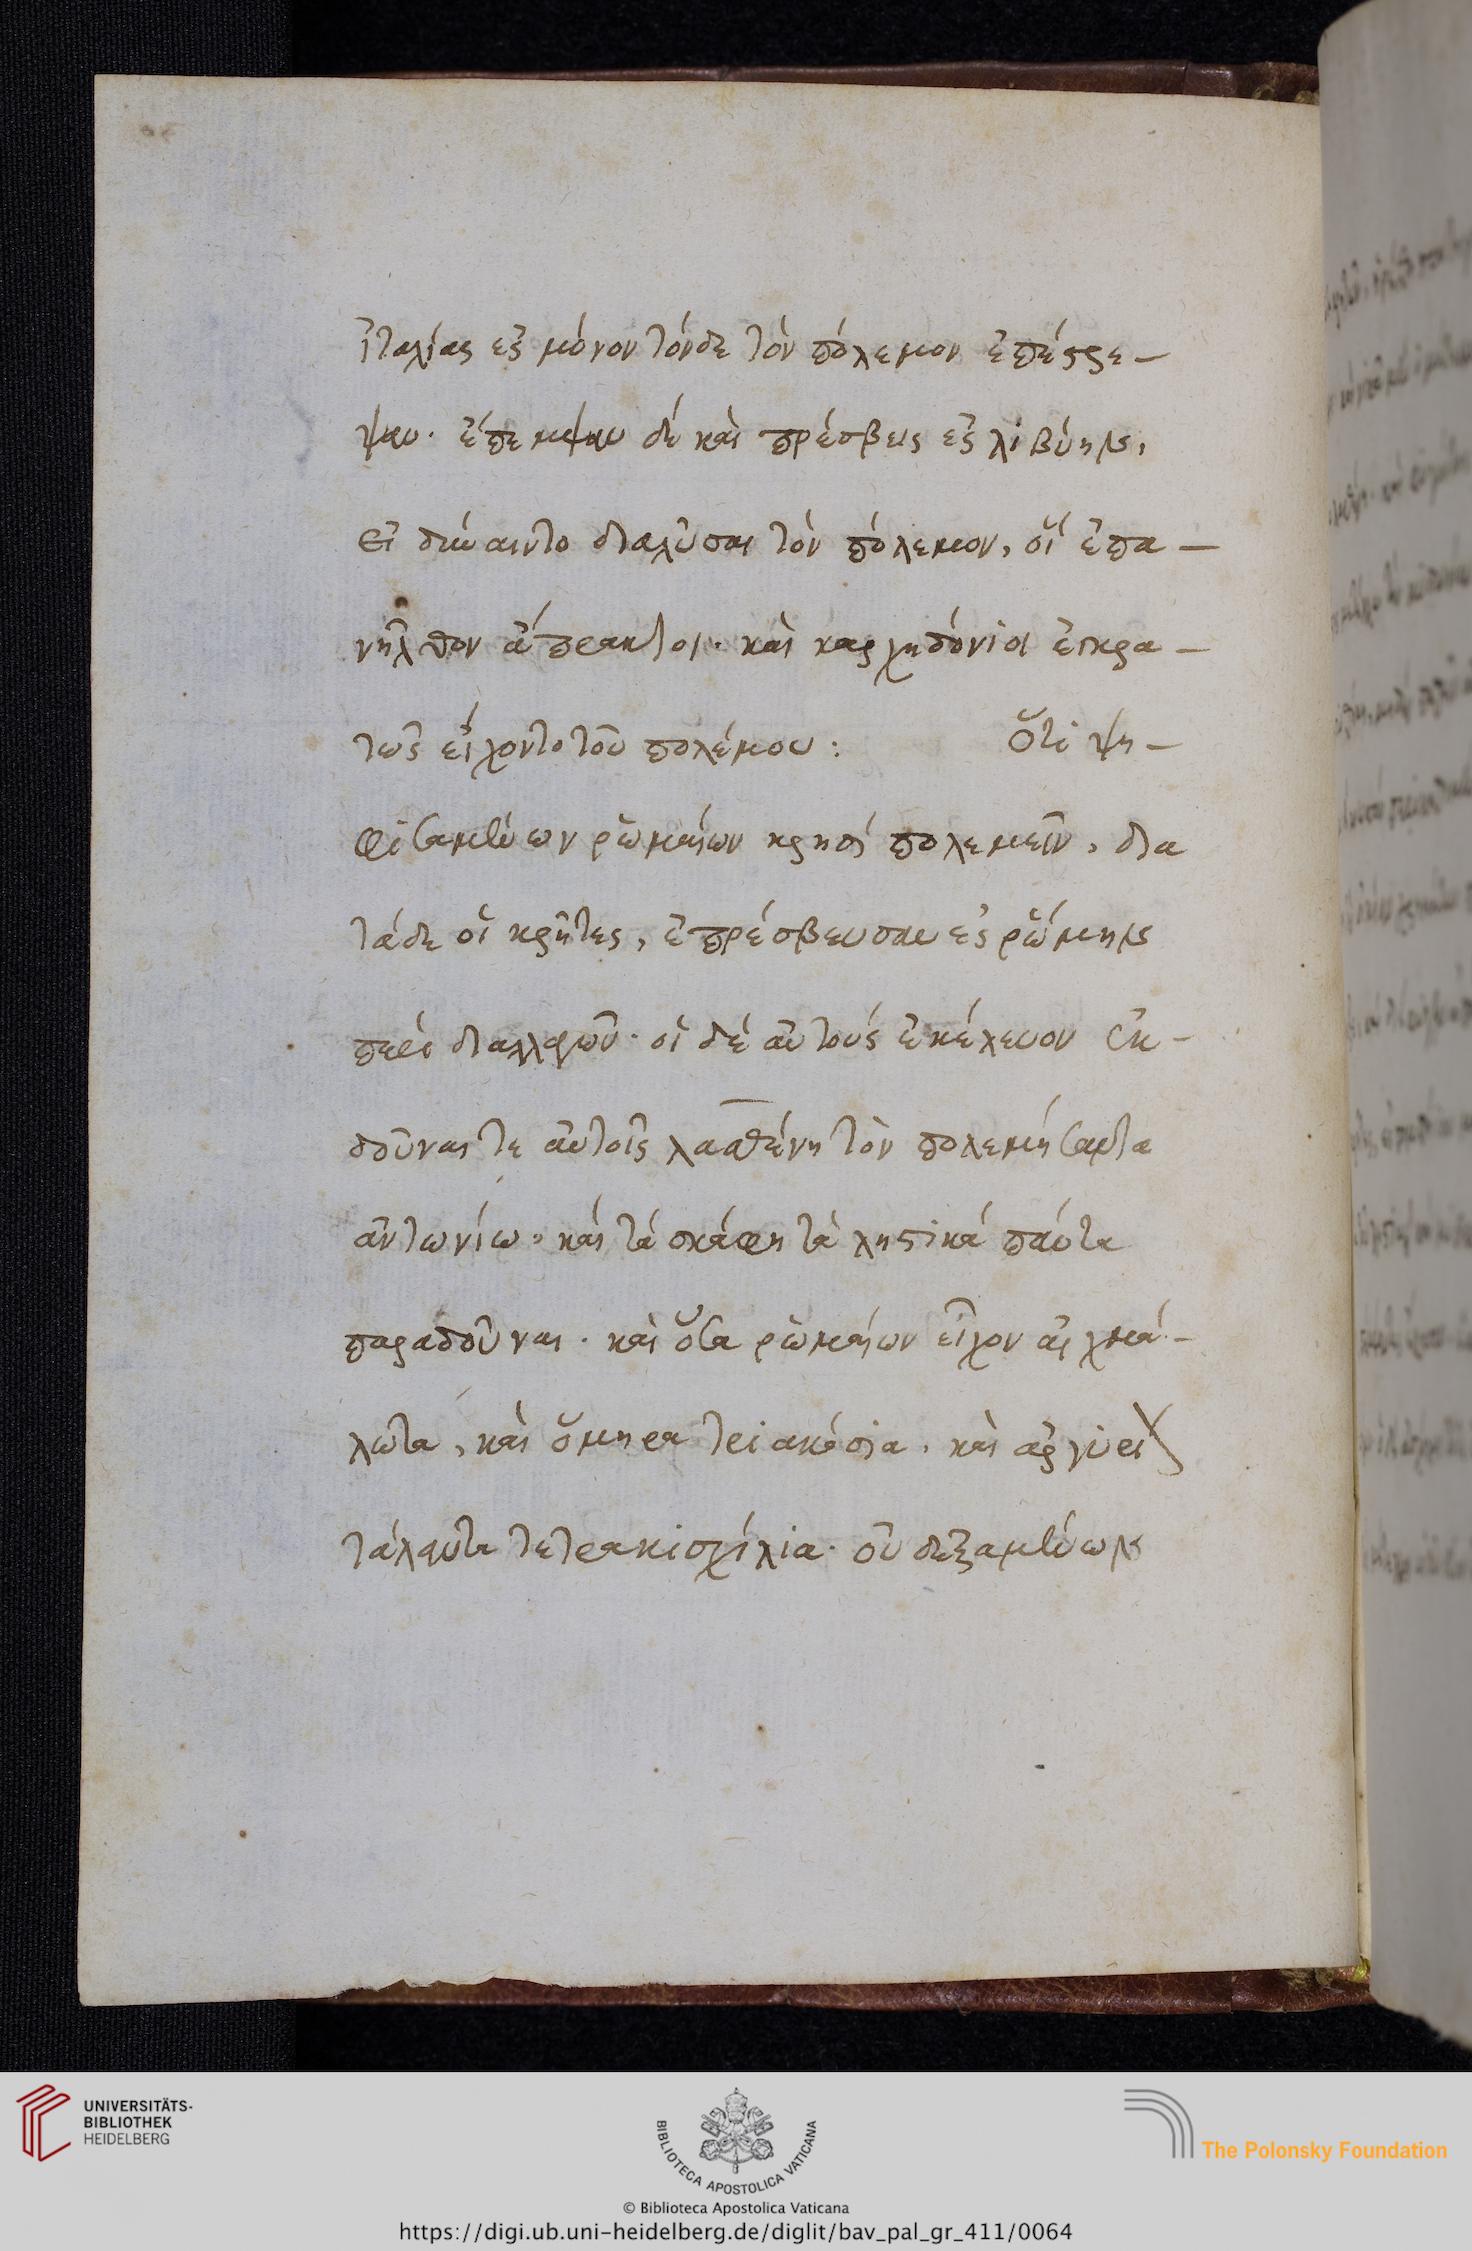 ἰταλίας ἐς μόνον τόνδε τὸν πόλεμον ἐπέστρε–
ψαν. ἔπεμψαν δὲ καὶ πρέσβεις ἐς λιβύην,
εἰ δύναιντο διαλῦσαι τὸν πόλεμον, οἵ ἐπα–
νῆλθον ἄπρακτοι. καὶ καρχηδόνιοι ἐγκρα–
τῶς εἴχοντο τοῦ πολέμου: Ὅτι ψη–
φισαμένων ῥωμαίων κρησὶ πολεμεῖν, δια
τάδε οἱ κρῆτες, ἐπρέσβευσαν ἐς ῥώμην
περὶ διαλλαγῶν. οἱ δὲ αὐτοὺς ἐκέλευον ἐκ–
δοῦναι τε αὐτοῖς λασθένη τὸν πολεμήσαντα
ἀντωνίω. καὶ τὰ σκάφη τὰ ληστικὰ πάντα
παραδοῦναι. καὶ ὅσα ῥωμαίων εἶχον αἰχμά–
λωτα, καὶ ὅμηρα τριακόσια. καὶ ἀργυρίου
τάλαντα τετρακισχίλια. οὐ δεξαμένων
UNIVERSITÄTS-
BIBLIOTHEK
HEIDELBERG
BIBLIOTECA APOSTOLICA VATICANA
The Polonsky Foundation
© Biblioteca Apostolica Vaticana
https://digi.ub.uni-heidelberg.de/diglit/bav_pal_gr_411/0064